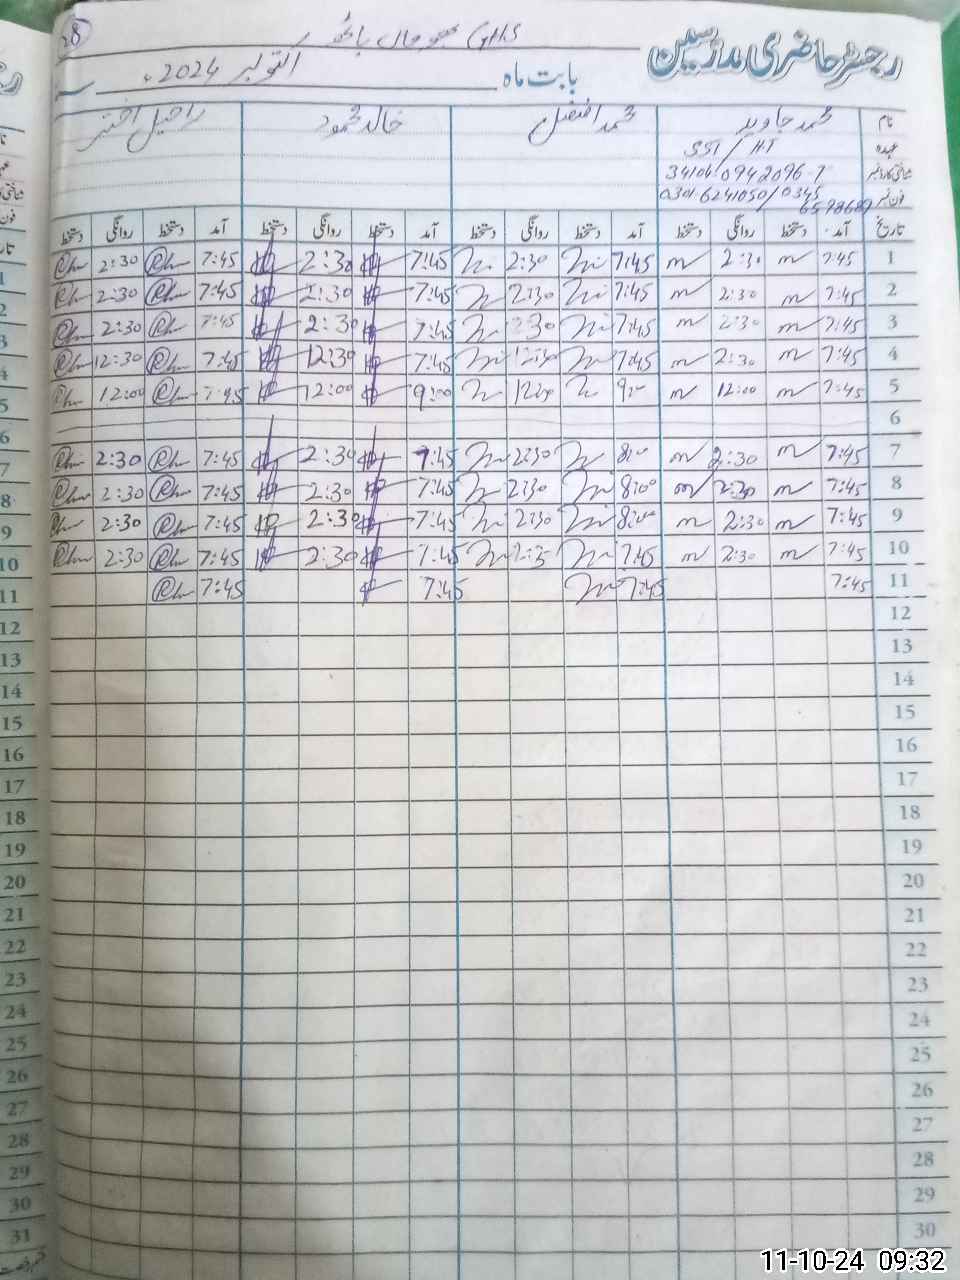 28
GHS بھوپال باٹھ
رجسٹر حاضری مدرسین
بابت ماہ اکتوبر 2024ء
نام محمد جاوید محمد افضل خالد محمود راحیل اختر
عہدہ SST / HT
شناختی کارڈ نمبر 34104-0942096-7
فون نمبر 0301-6241050/0345
6598687
تاریخ آمد دستخط روانگی دستخط آمد دستخط روانگی دستخط آمد دستخط روانگی دستخط آمد دستخط روانگی دستخط
1 7:45 2:30 7:45 2:30 7:45 2:30 7:45 2:30
2 7:45 2:30 7:45 2:30 7:45 2:30 7:45 2:30
3 7:45 2:30 7:45 2:30 7:45 2:30 7:45 2:30
4 7:45 2:30 7:45 12:30 7:45 12:30 7:45 12:30
5 7:45 12:00 9:00 12:00 9:00 12:00 7:45 12:00
6
7 7:45 2:30 8:00 2:30 7:45 2:30 7:45 2:30
8 7:45 2:30 8:00 2:30 7:45 2:30 7:45 2:30
9 7:45 2:30 8:00 2:30 7:45 2:30 7:45 2:30
10 7:45 2:30 7:45 7:45 2:30 7:45 2:30
11 7:45 7:45 7:45 7:45
12
13
14
15
16
17
18
19
20
21
22
23
24
25
26
27
28
29
30
11-10-24 09:32